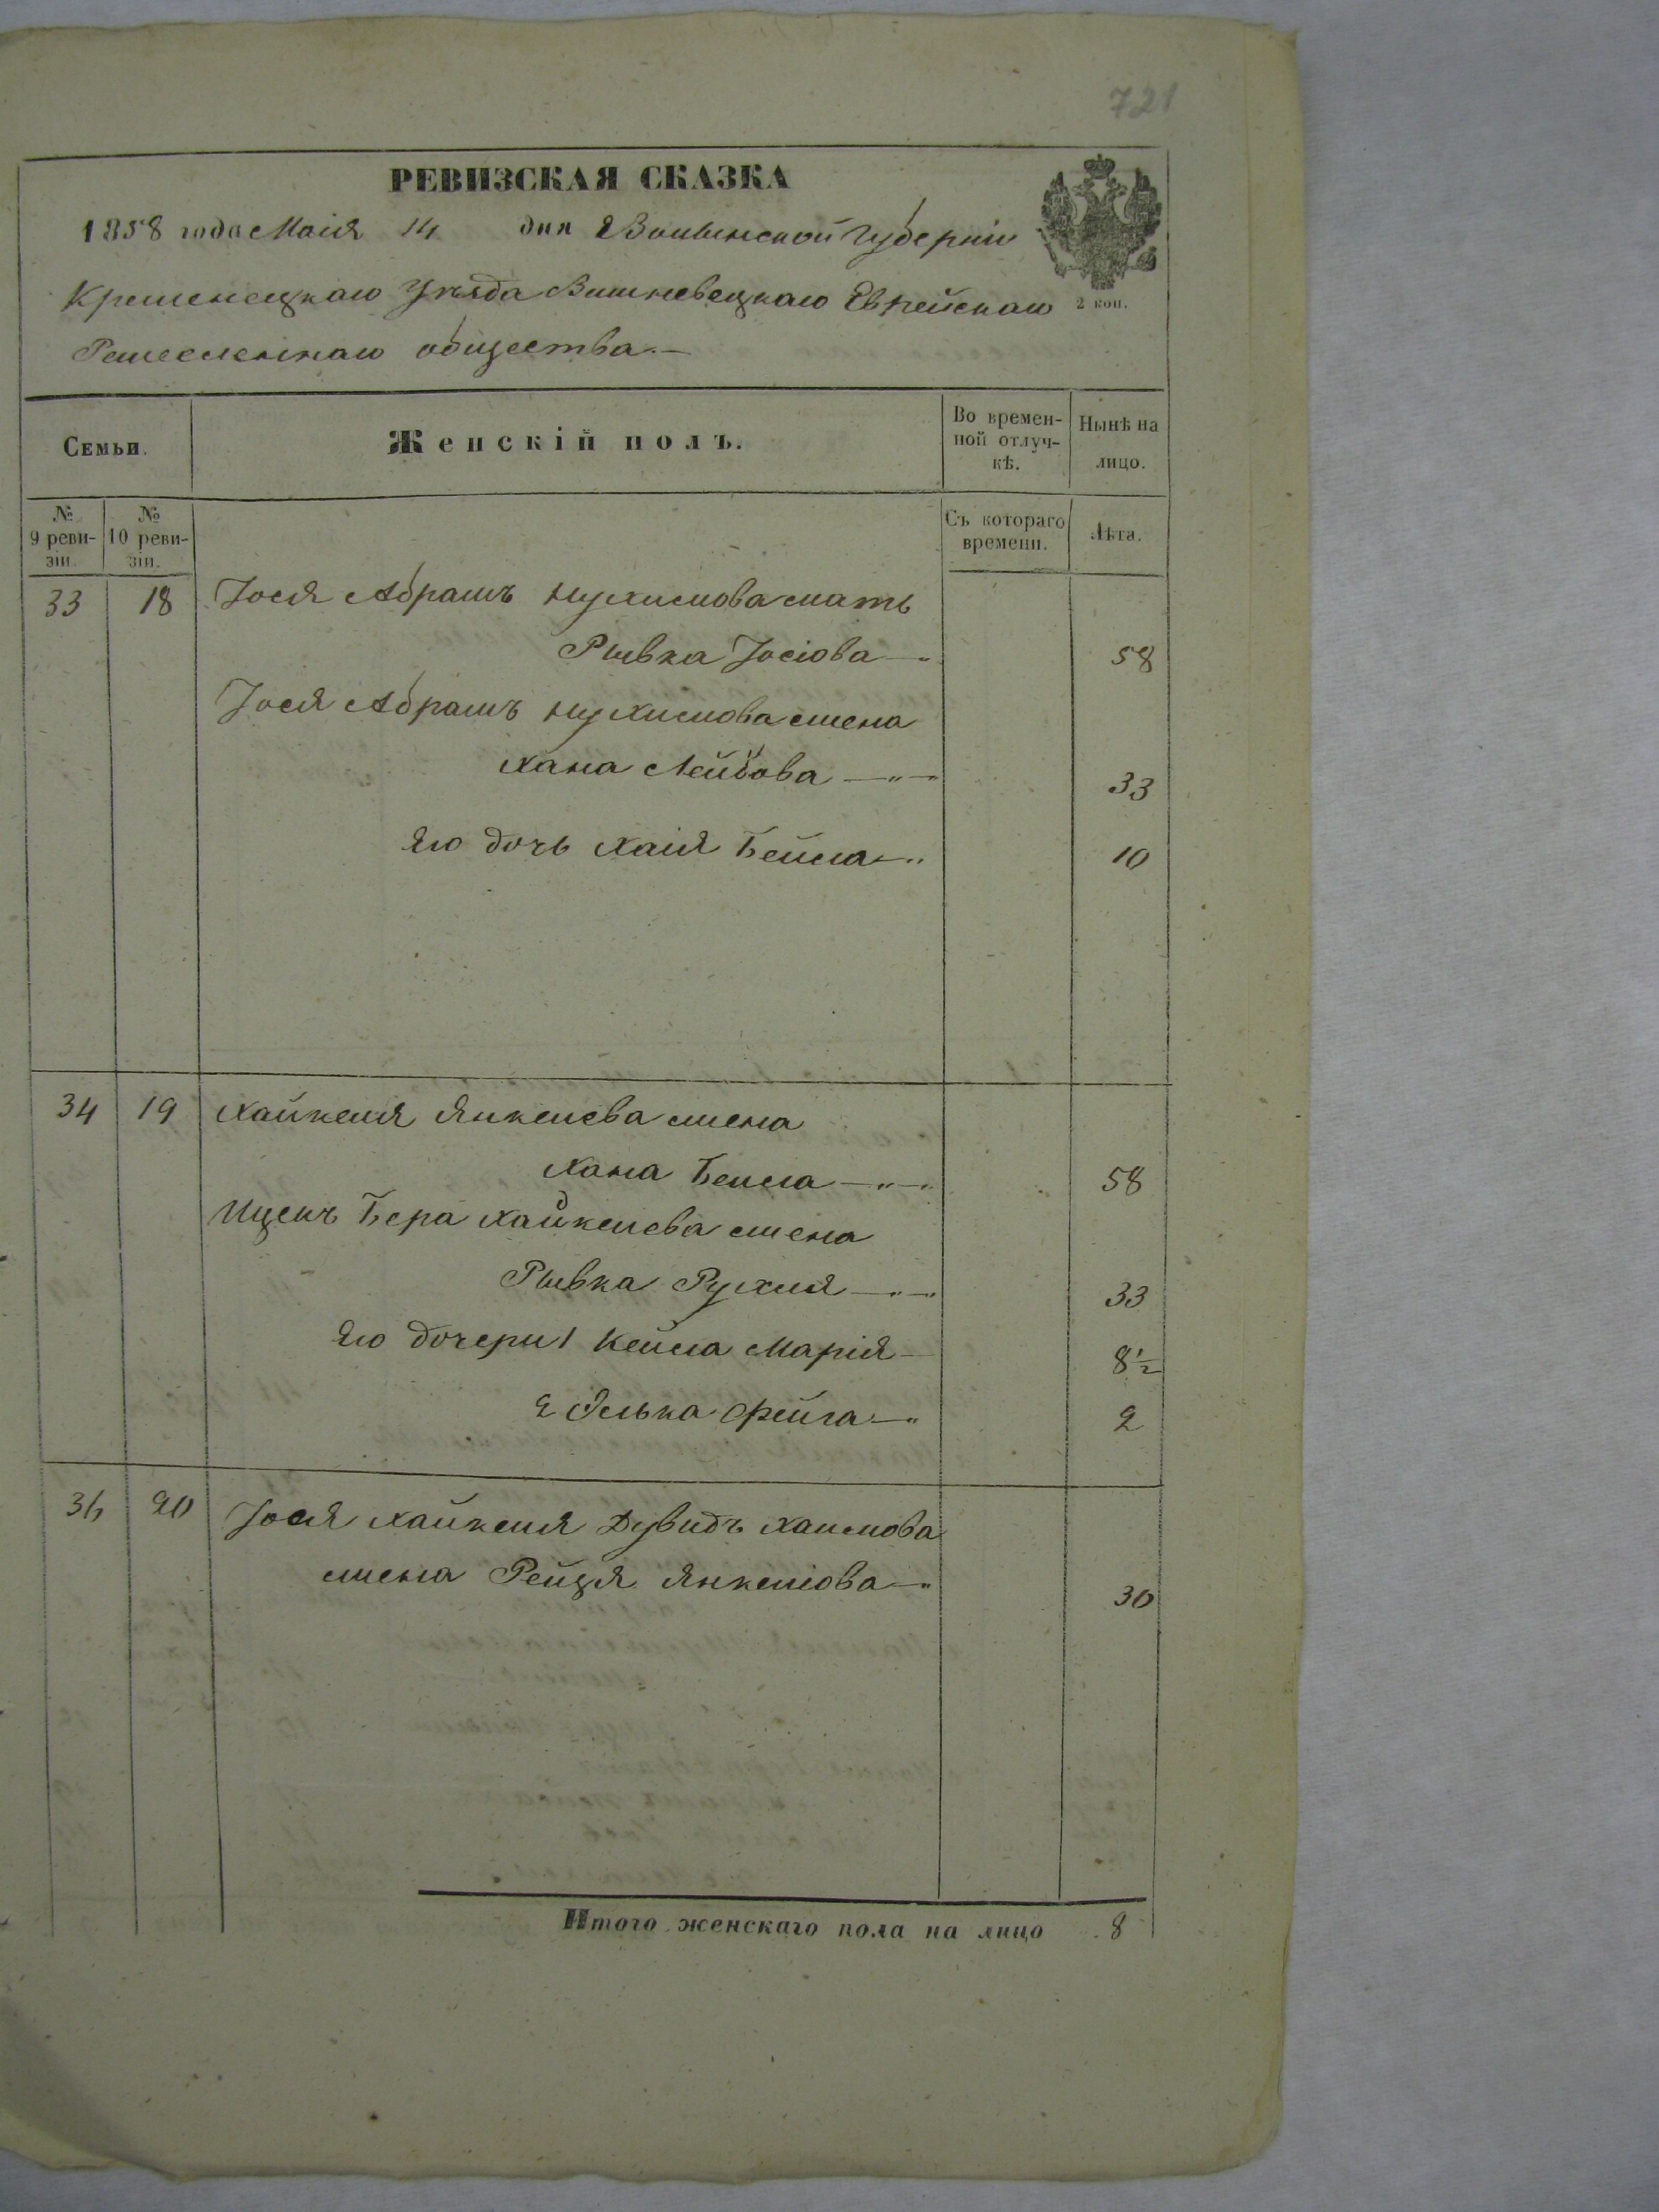 721
РЕВИЗСКАЯ СКАЗКА
1858 года Маія 14 дня Волынской Губерніи
Кременецкаго Уѣзда Вишневецкаго Еврейскаго
2 коп.
Ремесленнаго общества.—
Семьи.
Женскій полъ.
Во времен-
ной отлуч-
кѣ.
Нынѣ на
лицо.
№
9 реви-
зіи.
№
10 реви-
зіи.
Съ котораго
времени.
Лѣта.
33 18 Іося Абрамъ Нухимова мать
Рывка Іосіова —„ 58
Іося Абрамъ Нухимова жена
Хана Лейбова —„— 33
Его дочь Хаія Бейла —„ 10
34 19 Хайкеля Янкелева жена
Хана Бейла —„—„ 58
Ицекъ Бера Хайкелева жена
Рывка Рухля —„—„ 33
Его дочери 1 Кейла Марія — 8½
2 Элька Фейга —„ 2
20 Іося Хайкеля Дувидъ Хаимова
жена Рейзя Янкеліова —„ 30
Итого женскаго пола на лицо 8